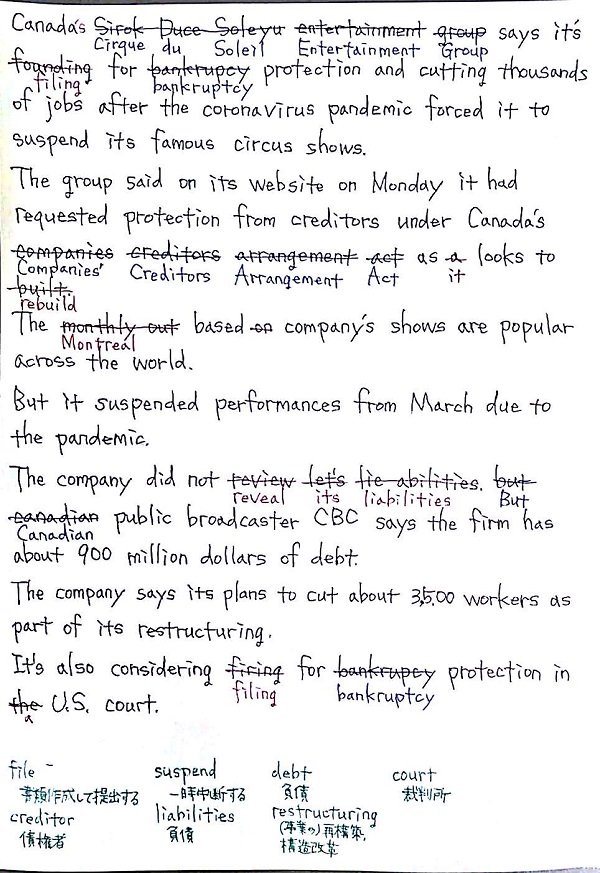 Canada's Sirok Duce Soleyu entertainment group says it's
Cirque du Soleil Entertainment Group
founding for bankrupcy protection and cutting thousands
filing bankruptcy
of jobs after the coronavirus pandemic forced it to
suspend its famous circus shows.
The group said on its website on Monday it had
requested protection from creditors under Canada's
companies creditors arrangement act as a looks to
Companies' Creditors Arrangement Act it
built.
rebuild
The monthly out based on company's shows are popular
Montreal
across the world.
But it suspended performances from March due to
the pandemic.
The company did not review let's lie abilities. but
reveal its liabilities But
canadian public broadcaster CBC says the firm has
Canadian
about 900 million dollars of debt.
The company says its plans to cut about 3,500 workers as
part of its restructuring.
It's also considering firing for bankrupcy protection in
filing bankruptcy
the U.S. court.
a
file suspend debt court
書類作成して提出する 一時中断する 負債 裁判所
creditor liabilities restructuring
債権者 負債 (事業の)再構築,
構造改革